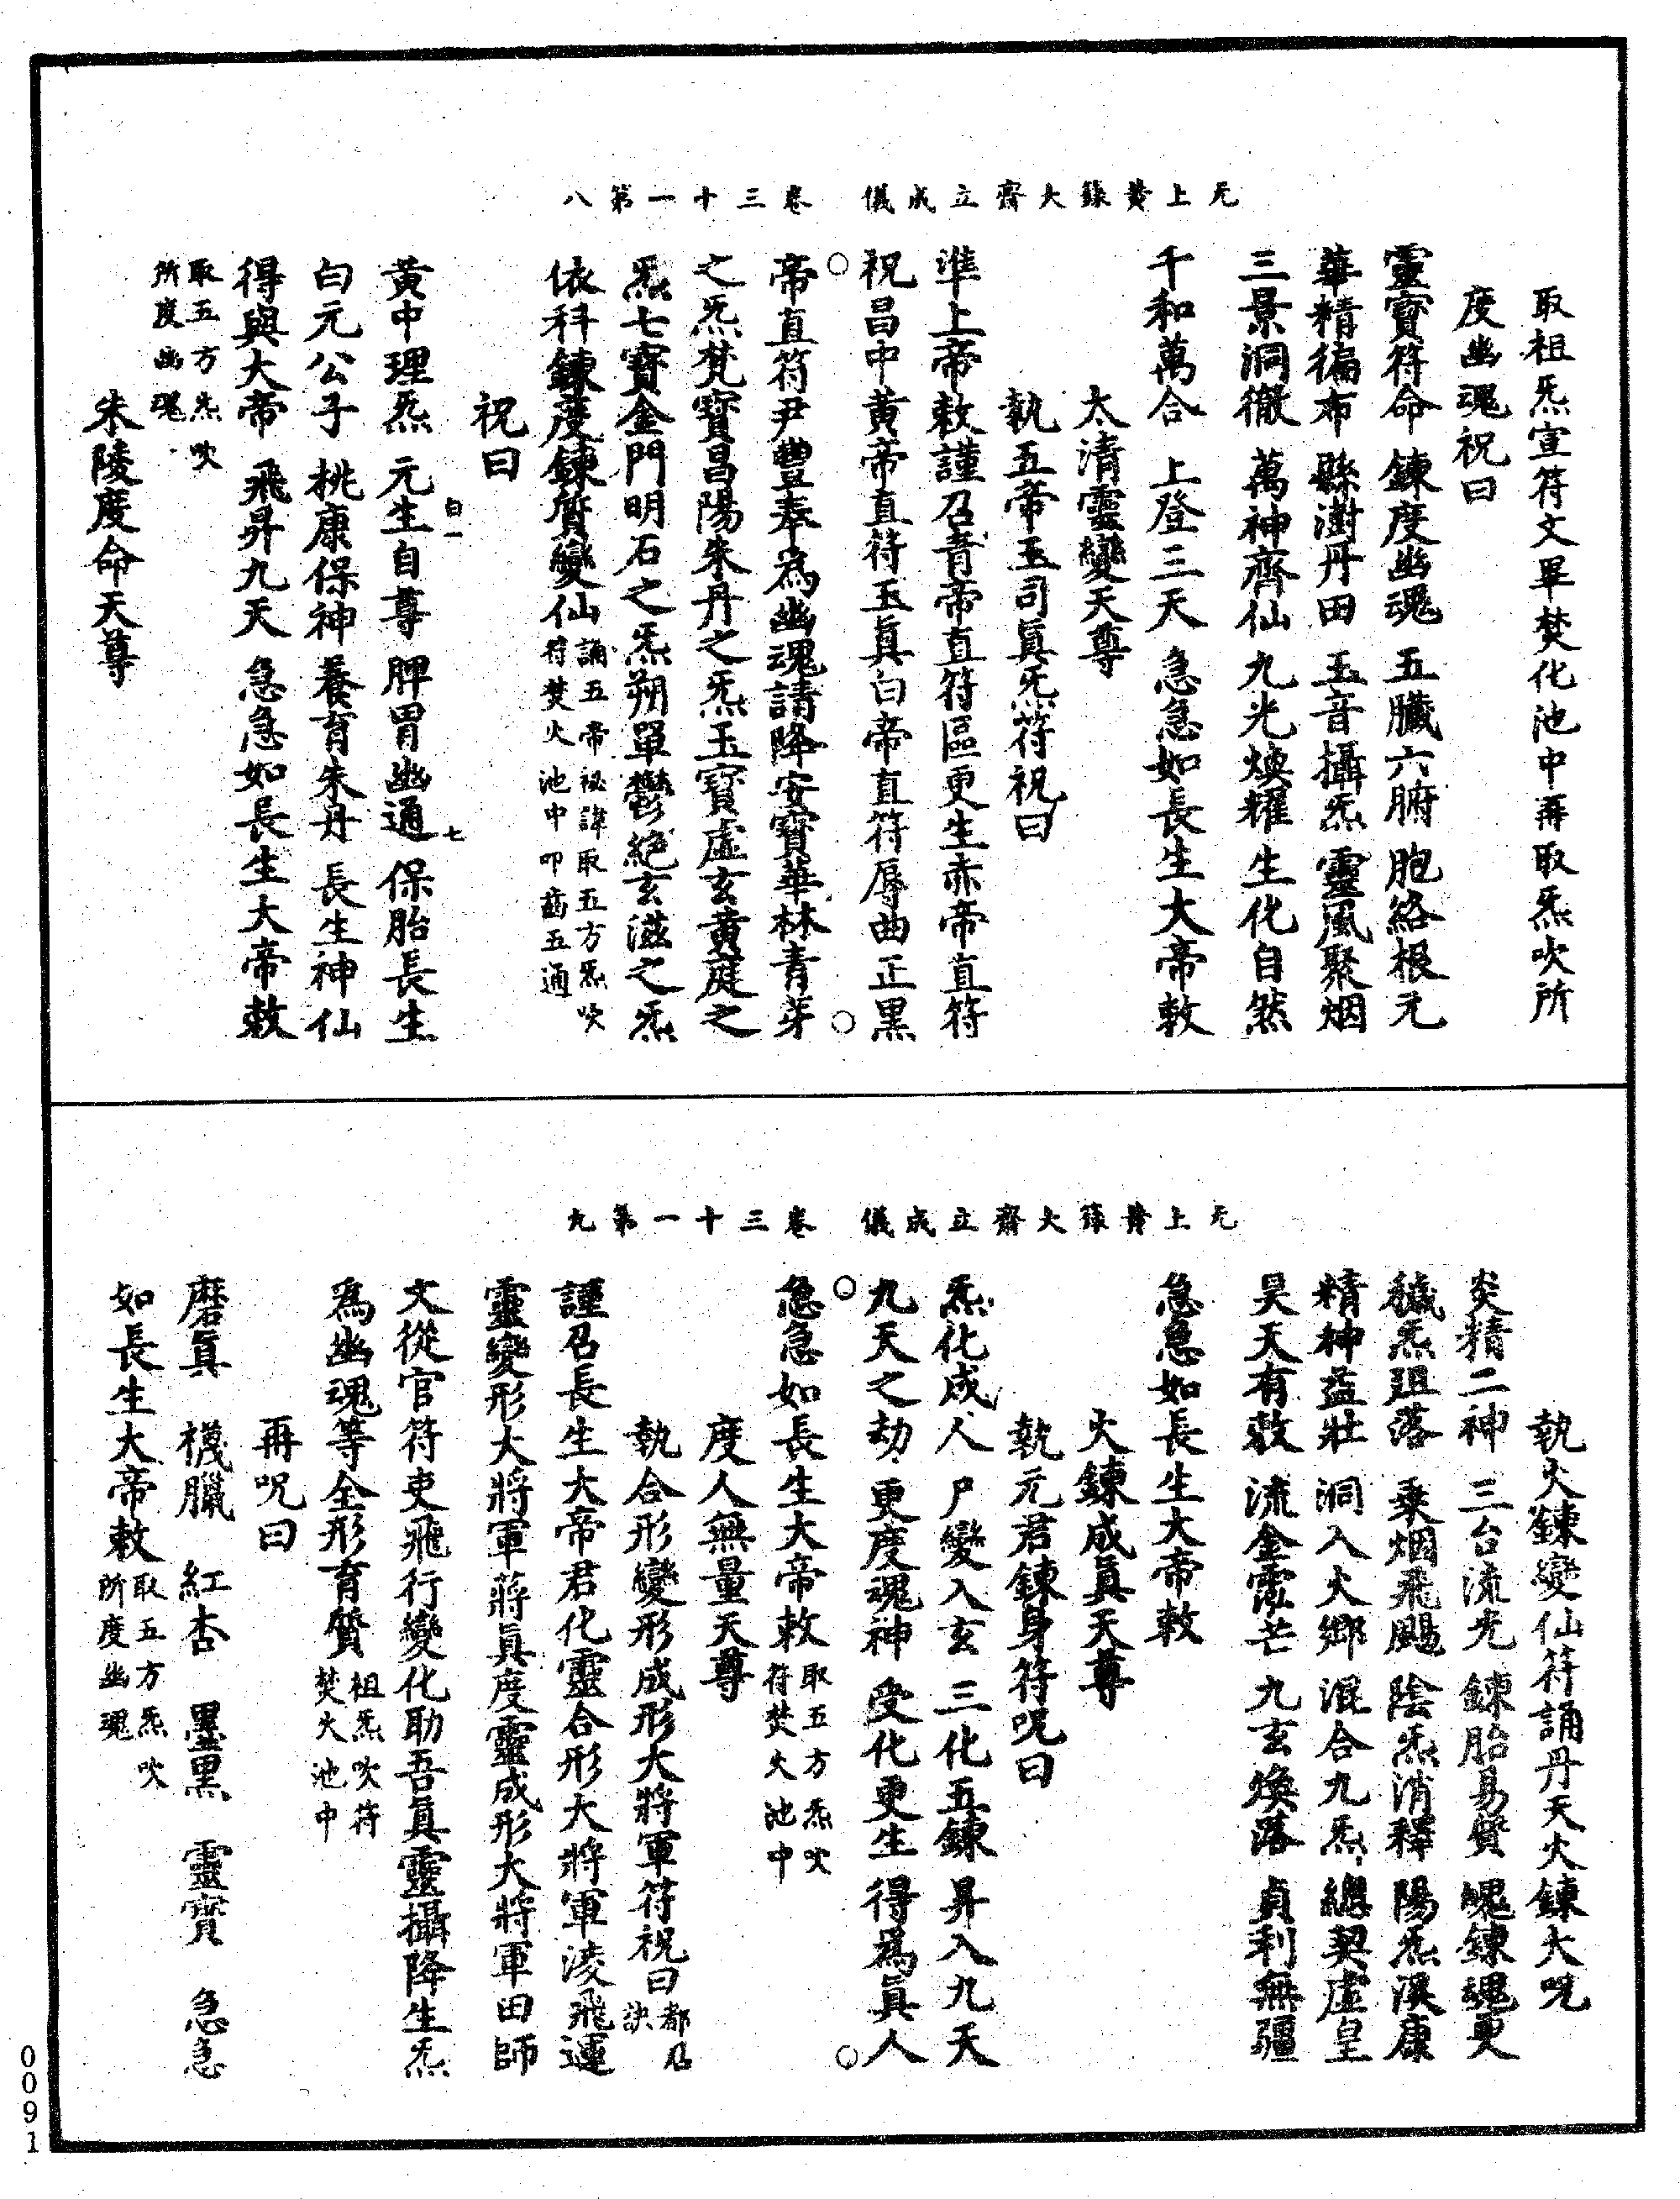 无上黃籙大齋立成儀　卷三十一第八
取祖炁宣符文畢焚化池中再取炁吹所
度幽魂祝曰
靈寶符命　鍊度幽魂　五臟六腑　胞絡根元
華精徧布　縣澍丹田　玉音攝炁　靈風聚烟
三景洞徹　萬神齊仙　九光煥耀　生化自然
千和萬合　上登三天　急急如長生大帝敕
太清靈變天尊
執五帝玉司眞炁符祝曰
準上帝敕謹召青帝直符區更生赤帝直符
祝昌中黃帝直符玉眞白帝直符辱曲正黑
帝直符尹豐奉爲幽魂請降安寶華林青芽
之炁梵寶昌陽朱丹之炁玉寶虛玄黃庭之
炁七寶金門明石之炁朔單鬱絕玄滋之炁
依科鍊度鍊質變仙誦五帝祕諱取五方炁吹符焚火池中叩齒五通
祝曰
白一　七
黃中理炁　元生自尊　脾胃幽通　保胎長生
白元公子　桃康保神　養育朱丹　長生神仙
得與大帝　飛昇九天　急急如長生大帝敕
取五方炁吹所度幽魂
朱陵度命天尊
无上黃籙大齋立成儀　卷三十一第九
執火鍊變仙符誦丹天火鍊大呪
炎精二神　三台流光　鍊胎易質　魄鍊魂更
穢炁殂落　乘烟飛颺　陰炁消釋　陽炁漠康
精神益壯　洞入火鄉　混合九炁　總契虛皇
昊天有敕　流金電芒　九玄煥落　貞利無疆
急急如長生大帝敕
火鍊成眞天尊
執元君鍊身符呪曰
炁化成人　尸變入玄　三化五鍊　昇入九天
九天之劫　更度魂神　受化更生　得爲眞人
急急如長生大帝敕取五方炁吹符焚火池中
度人無量天尊
執合形變形成形大將軍符祝曰都召訣
謹召長生大帝君化靈合形大將軍淩飛運
靈變形大將軍蔣眞度靈成形大將軍田師
文從官符吏飛行變化助吾眞靈攝降生炁
爲幽魂等全形育質祖炁吹符焚火池中
再呪曰
磨眞　襪臘　紅杏　墨黑　靈寶　急急
如長生大帝敕取五方炁吹所度幽魂
0091